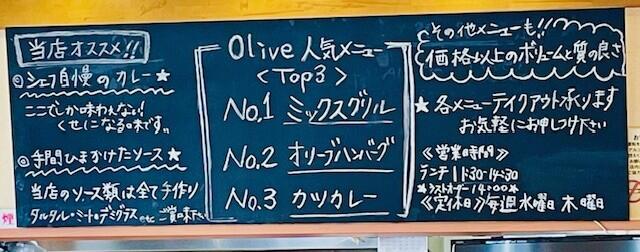 当店オススメ!!
◎シェフ自慢のカレー★
ここでしか味わえない!
くせになる味です。
◎手間ひまかけたソース★
当店のソース類は全て手作り
タルタル・ミート・デミグラス
ご賞味下さい
Olive 人気メニュー
<Top3>
No.1 ミックスグリル
No.2 オリーブハンバーグ
No.3 カツカレー
その他メニューも!!
価格以上のボリュームと質の良さ
★各メニューテイクアウト承ります
お気軽にお申しつけ下さい
《営業時間》
ランチ 11:30-14:30
★ラストオーダー14:00★
《定休日》毎週水曜日 木曜日